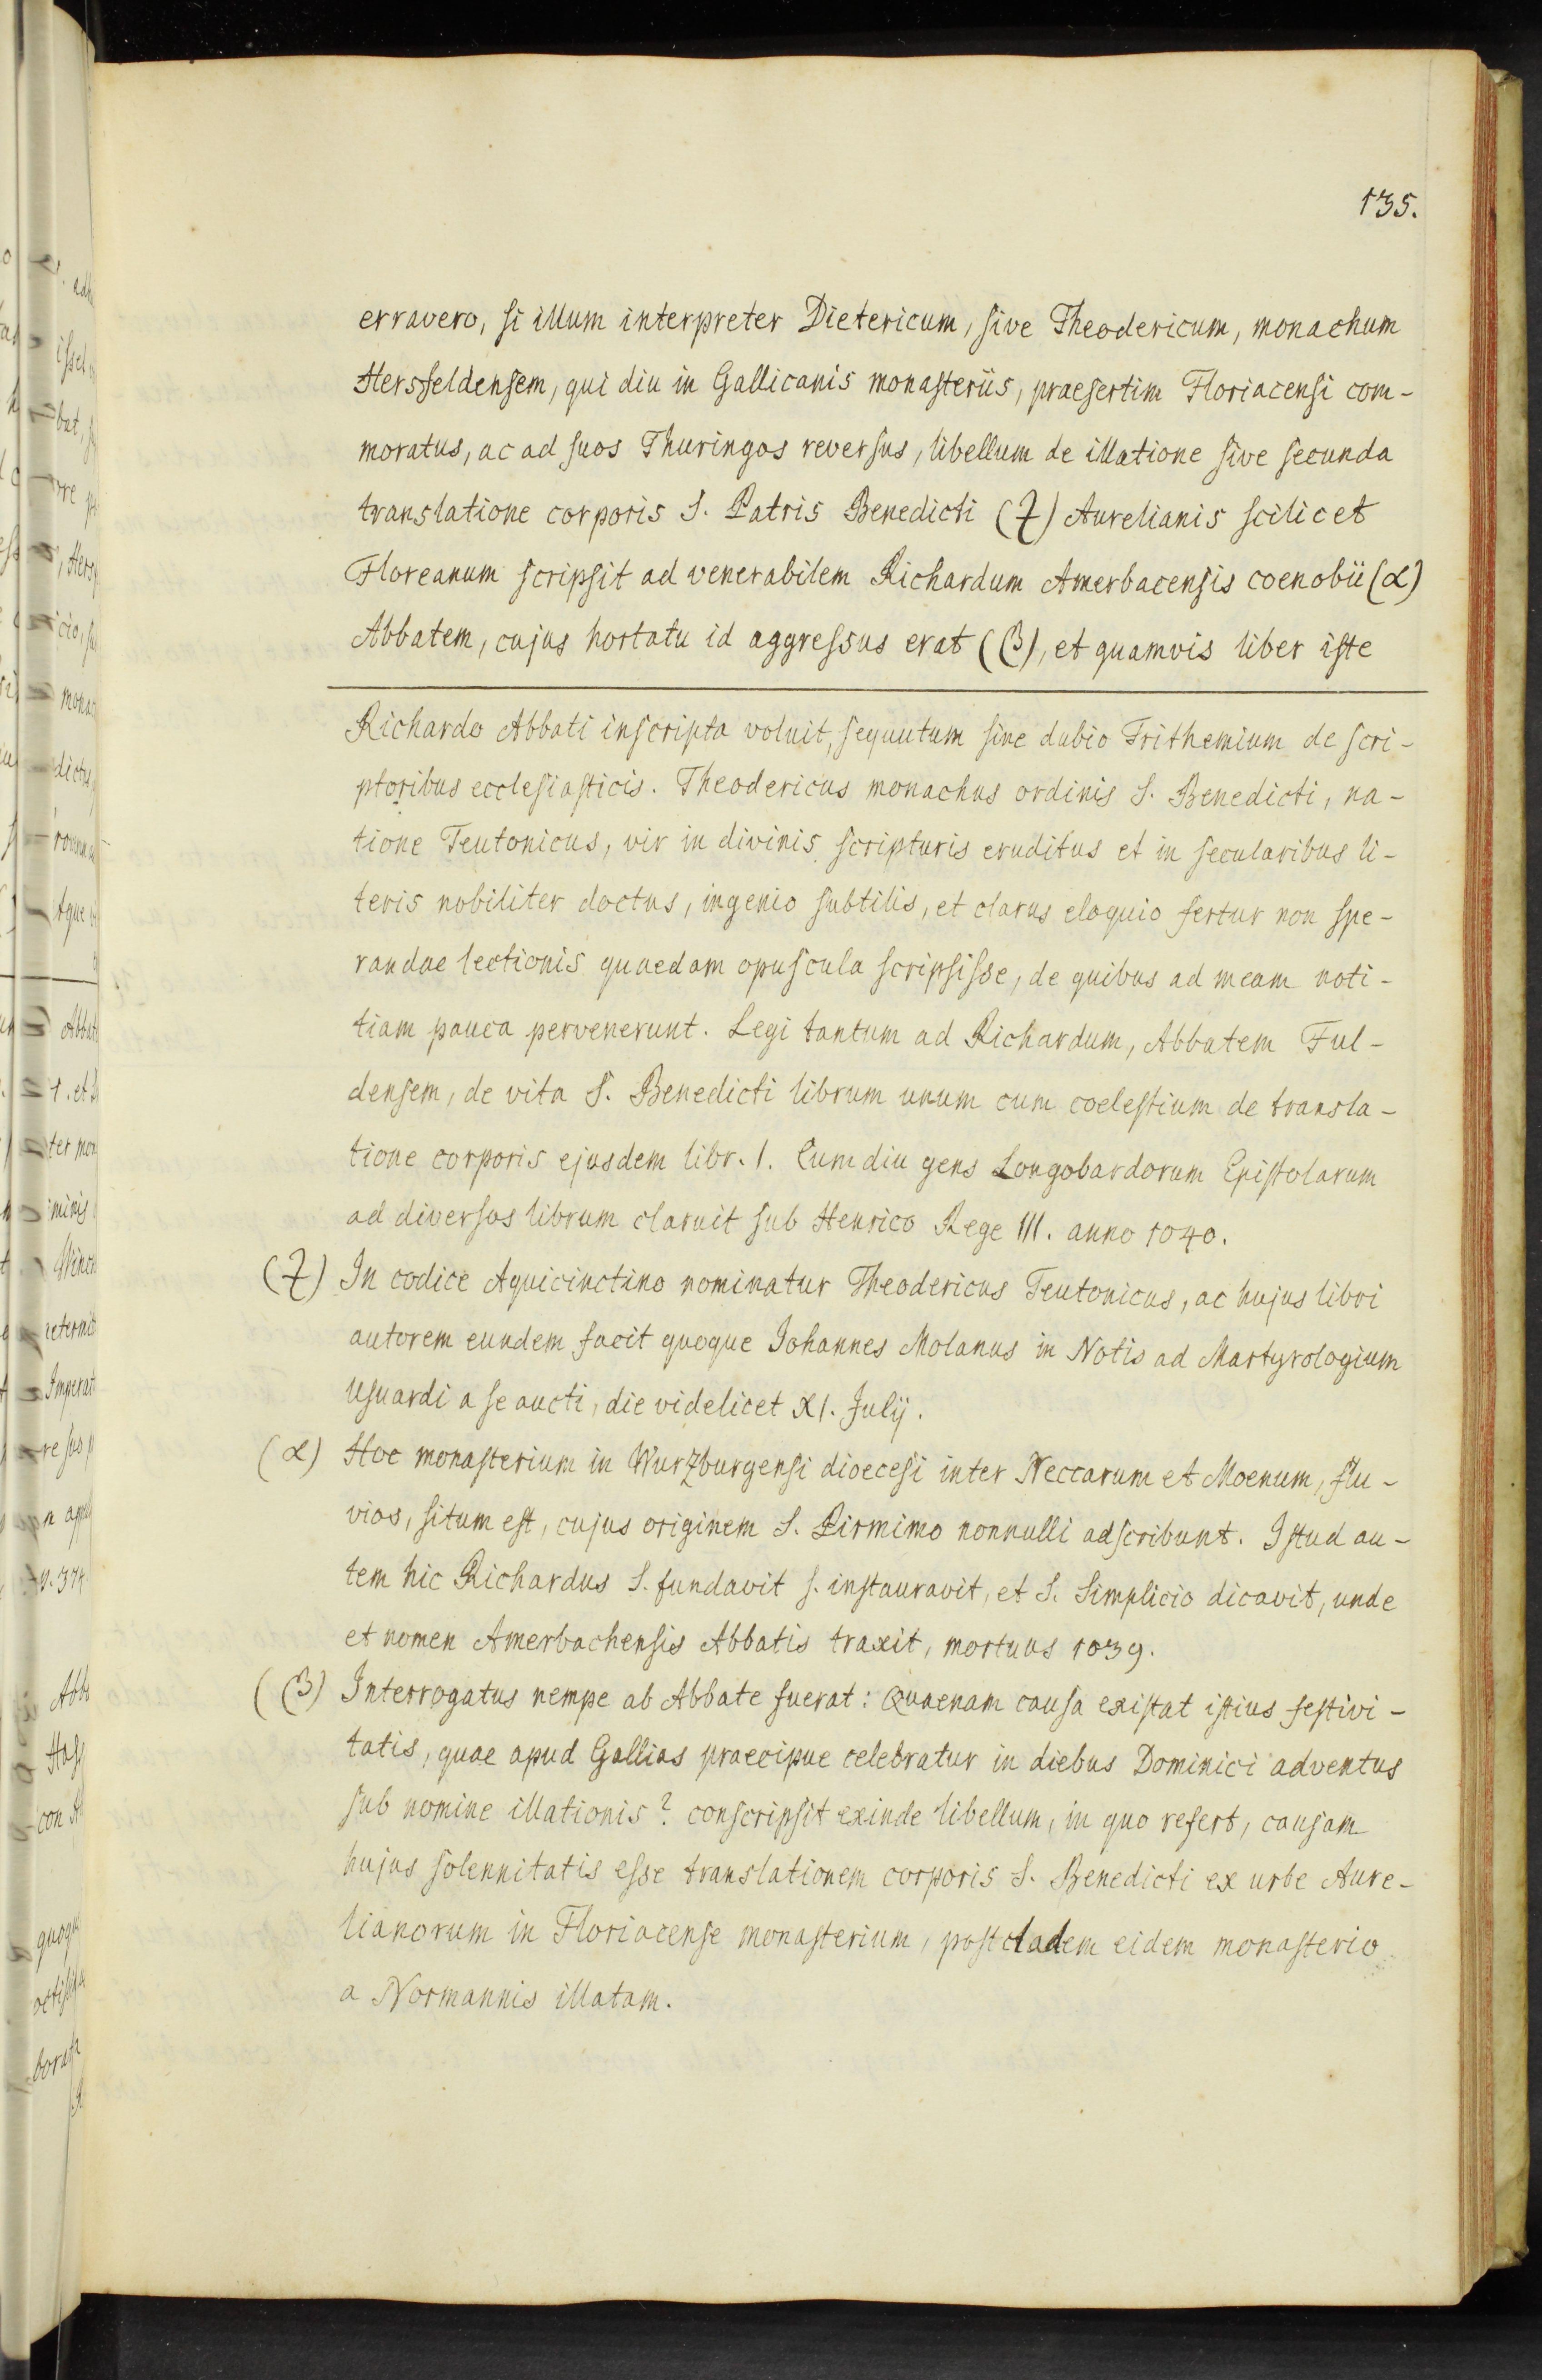 135.
erravero, si illum interpreter Dietericum, sive Theodericum, monachum
Hersfeldensem, qui diu in Gallicanis monasteriis, praesertim Floriacensi com-
moratus, ac ad suos Thuringos reversus, libellum de illatione sive secunda
translatione corporis S. Patris Benedicti (Z) Aurelianis scilicet
Floreanum scripsit ad venerabilem Richardum Amerbacensis coenobii (α)
Abbatem, cujus hortatu id aggressus erat (β), et quamvis liber iste
Richardo Abbati inscripta voluit, sequutum sine dubio Trithemium de scri-
ptoribus ecclesiasticis. Theodericus monachus ordinis S. Benedicti, na-
tione Teutonicus, vir in divinis scripturis eruditus et in secularibus li-
teris nobiliter doctus, ingenio subtilis, et clarus eloquio fertur non spe-
randae lectionis quaedam opuscula scripsisse, de quibus ad meam noti-
tiam pauca pervenerunt. Legi tantum ad Richardum, Abbatem Ful-
densem, de vita S. Benedicti librum unum cum coelestium de transla-
tione corporis ejusdem libr. 1. Cum diu gens Longobardorum Epistolarum
ad diversos librum claruit sub Henrico Rege III. anno 1040.
(Z) In codice Aquicinctino nominatur Theodericus Teutonicus, ac hujus libri
autorem eundem facit quoque Iohannes Molanus in Notis ad Martyrologium
Usuardi a se aucti, die videlicet XI. Julij.
(α) Hoc monasterium in Wurzburgensi dioecesi inter Neccarum et Moenum, flu-
vios, situm est, cujus originem S. Pirmimo nonnulli adscribunt. Istud au-
tem hic Richardus S. fundavit s. instauravit, et S. Simplicio dicavit, unde
et nomen Amerbachensis Abbatis traxit, mortuus 1039.
(β) Interrogatus nempe ab Abbate fuerat: Quaenam causa existat istius festivi-
tatis, quae apud Gallias praecipue celebratur in diebus Dominici adventus
sub nomine illationis? conscripsit exinde libellum, in quo refert, causam
hujus solennitatis esse translationem corporis S. Benedicti ex urbe Aure-
lianorum in Floriacense monasterium, post cladem eidem monasterio
a Normannis illatam.